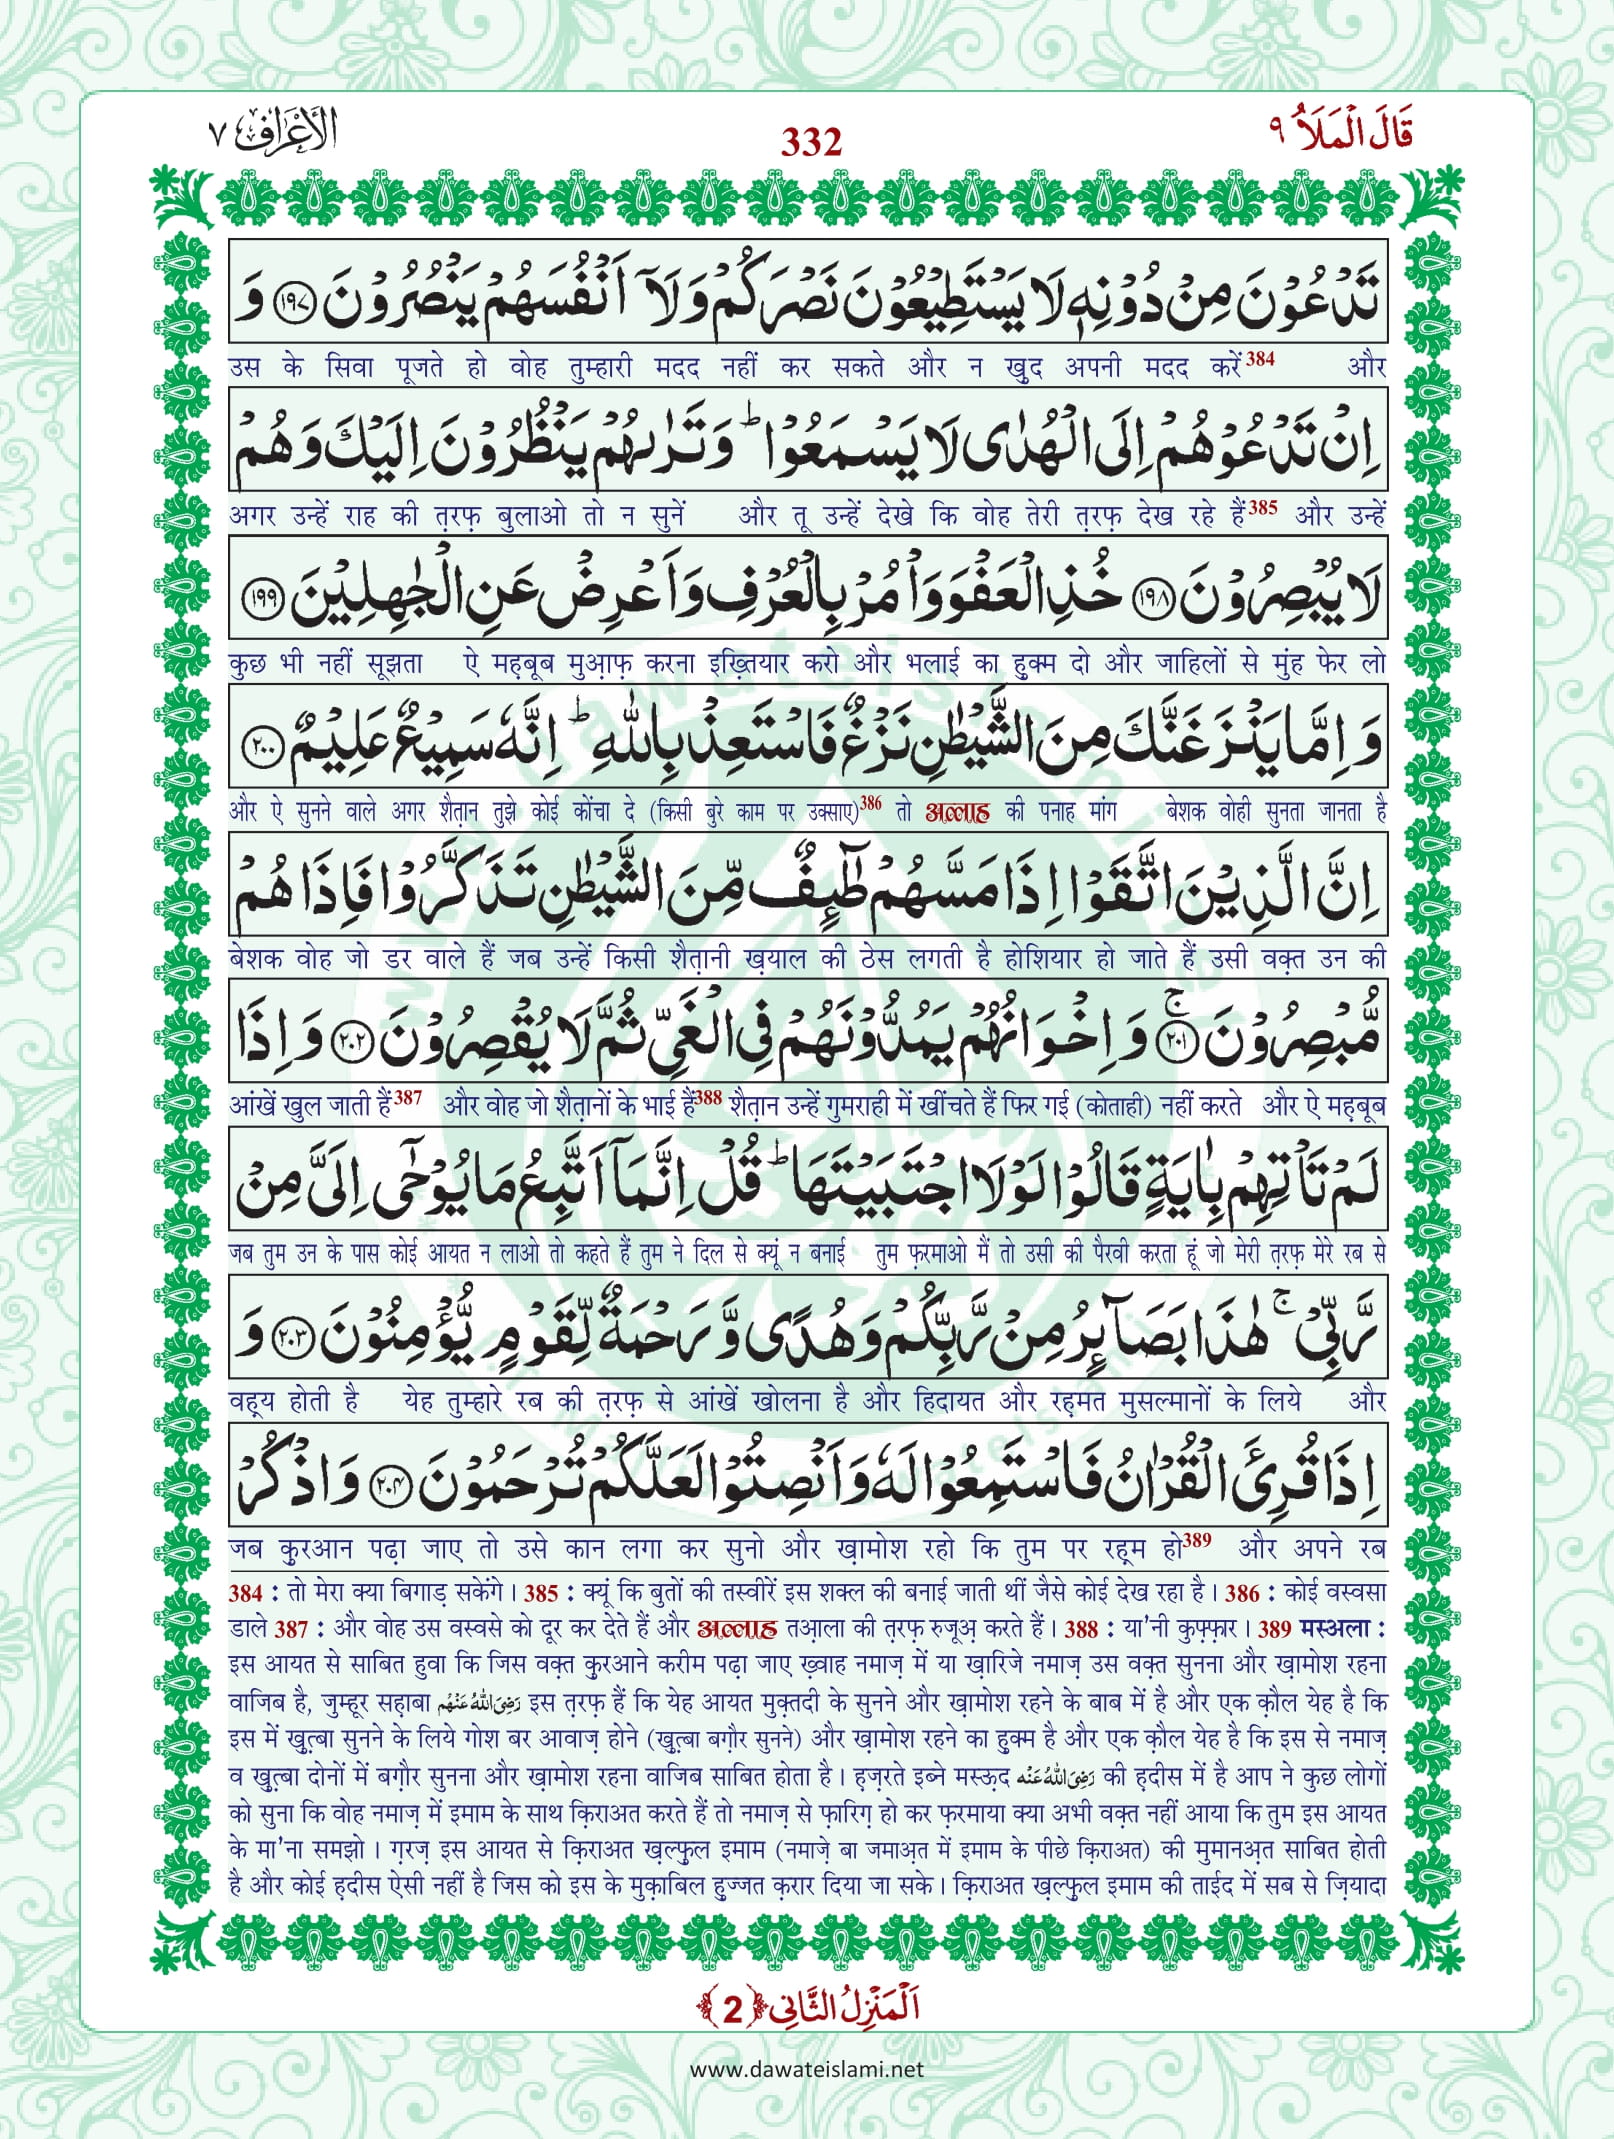 الأعراف ٧
332
قَالَ الْمَلَاُ ٩
تَدْعُوْنَ مِنْ دُوْنِهٖ لَا یَسْتَطِیْعُوْنَ نَصْرَكُمْ وَلَاۤ اَنْفُسَهُمْ یَنْصُرُوْنَ ﴿۱۹۷﴾ وَ
उस के सिवा पूजते हो वोह तुम्हारी मदद नहीं कर सकते और न खुद अपनी मदद करें384 और
اِنْ تَدْعُوْهُمْ اِلَى الْهُدٰى لَا یَسْمَعُوْا ؕ وَ تَرٰىهُمْ یَنْظُرُوْنَ اِلَیْكَ وَ هُمْ
अगर उन्हें राह की त़रफ़ बुलाओ तो न सुनें और तू उन्हें देखे कि वोह तेरी त़रफ़ देख रहे हैं385 और उन्हें
لَا یُبْصِرُوْنَ ﴿۱۹۸﴾ خُذِ الْعَفْوَ وَ اْمُرْ بِالْعُرْفِ وَ اَعْرِضْ عَنِ الْجٰهِلِیْنَ ﴿۱۹۹﴾
कुछ भी नहीं सूझता ऐ मह़बूब मुआ़फ़ करना इख़्तियार करो और भलाई का हुक्म दो और जाहिलों से मुंह फेर लो
وَ اِمَّا یَنْزَغَنَّكَ مِنَ الشَّیْطٰنِ نَزْغٌ فَاسْتَعِذْ بِاللّٰهِ ؕ اِنَّهٗ سَمِیْعٌ عَلِیْمٌ ﴿۲۰۰﴾
और ऐ सुनने वाले अगर शैत़ान तुझे कोई कोंचा दे (किसी बुरे काम पर उक्साए)386 तो अल्लाह की पनाह मांग बेशक वोही सुनता जानता है
اِنَّ الَّذِیْنَ اتَّقَوْا اِذَا مَسَّهُمْ طٰٓىٕفٌ مِّنَ الشَّیْطٰنِ تَذَكَّرُوْا فَاِذَا هُمْ
बेशक वोह जो डर वाले हैं जब उन्हें किसी शैत़ानी ख़याल की ठेस लगती है होशियार हो जाते हैं उसी वक़्त उन की
مُّبْصِرُوْنَ ﴿۲۰۱﴾ۚ وَ اِخْوَانُهُمْ یَمُدُّوْنَهُمْ فِی الْغَیِّ ثُمَّ لَا یُقْصِرُوْنَ ﴿۲۰۲﴾ وَ اِذَا
आंखें खुल जाती हैं387 और वोह जो शैत़ानों के भाई हैं388 शैत़ान उन्हें गुमराही में खींचते हैं फिर गई (कोताही) नहीं करते और ऐ मह़बूब
لَمْ تَاْتِهِمْ بِاٰیَةٍ قَالُوْا لَوْ لَا اجْتَبَیْتَهَا ؕ قُلْ اِنَّمَاۤ اَتَّبِعُ مَا یُوْحٰۤى اِلَیَّ مِنْ
जब तुम उन के पास कोई आयत न लाओ तो कहते हैं तुम ने दिल से क्यूं न बनाई तुम फ़रमाओ मैं तो उसी की पैरवी करता हूं जो मेरी त़रफ़ मेरे रब से
رَّبِّیْ ۚ هٰذَا بَصَآىٕرُ مِنْ رَّبِّكُمْ وَ هُدًى وَّ رَحْمَةٌ لِّقَوْمٍ یُّؤْمِنُوْنَ ﴿۲۰۳﴾ وَ
वह़्य होती है येह तुम्हारे रब की त़रफ़ से आंखें खोलना है और हिदायत और रह़मत मुसल्मानों के लिये और
اِذَا قُرِئَ الْقُرْاٰنُ فَاسْتَمِعُوْا لَهٗ وَ اَنْصِتُوْا لَعَلَّكُمْ تُرْحَمُوْنَ ﴿۲۰۴﴾ وَ اذْكُرْ
जब क़ुरआन पढ़ा जाए तो उसे कान लगा कर सुनो और ख़ामोश रहो कि तुम पर रह़म हो389 और अपने रब
384 : तो मेरा क्या बिगाड़ सकेंगे। 385 : क्यूं कि बुतों की तस्वीरें इस शक्ल की बनाई जाती थीं जैसे कोई देख रहा है। 386 : कोई वस्वसा
डाले 387 : और वोह उस वस्वसे को दूर कर देते हैं और अल्लाह तआ़ला की त़रफ़ रुजूअ़ करते हैं। 388 : या'नी कुफ़्फ़ार। 389 मस्अला :
इस आयत से साबित हुवा कि जिस वक़्त क़ुरआने करीम पढ़ा जाए ख़्वाह नमाज़ में या ख़ारिजे नमाज़ उस वक़्त सुनना और ख़ामोश रहना
वाजिब है, जुम्हूर सह़ाबा رَضِىَ اللّٰهُ عَنْهُم इस त़रफ़ हैं कि येह आयत मुक़्तदी के सुनने और ख़ामोश रहने के बाब में है और एक क़ौल येह है कि
इस में ख़ुत़्बा सुनने के लिये गोश बर आवाज़ होने (ख़ुत़्बा बग़ौर सुनने) और ख़ामोश रहने का हुक्म है और एक क़ौल येह है कि इस से नमाज़
व ख़ुत़्बा दोनों में बग़ौर सुनना और ख़ामोश रहना वाजिब साबित होता है। ह़ज़रते इब्ने मस्ऊ़द رَضِىَ اللّٰهُ عَنْه की ह़दीस में है आप ने कुछ लोगों
को सुना कि वोह नमाज़ में इमाम के साथ क़िराअत करते हैं तो नमाज़ से फ़ारिग़ हो कर फ़रमाया क्या अभी वक़्त नहीं आया कि तुम इस आयत
के मा'ना समझो। ग़रज़ इस आयत से क़िराअत ख़ल्फ़ुल इमाम (नमाज़े बा जमाअ़त में इमाम के पीछे क़िराअत) की मुमानअ़त साबित होती
है और कोई ह़दीस ऐसी नहीं है जिस को इस के मुक़ाबिल हुज्जत क़रार दिया जा सके। क़िराअत ख़ल्फ़ुल इमाम की ताईद में सब से ज़ियादा
اَلْمَنْزِلُ الثَّانِی ﴿2﴾
www.dawateislami.net